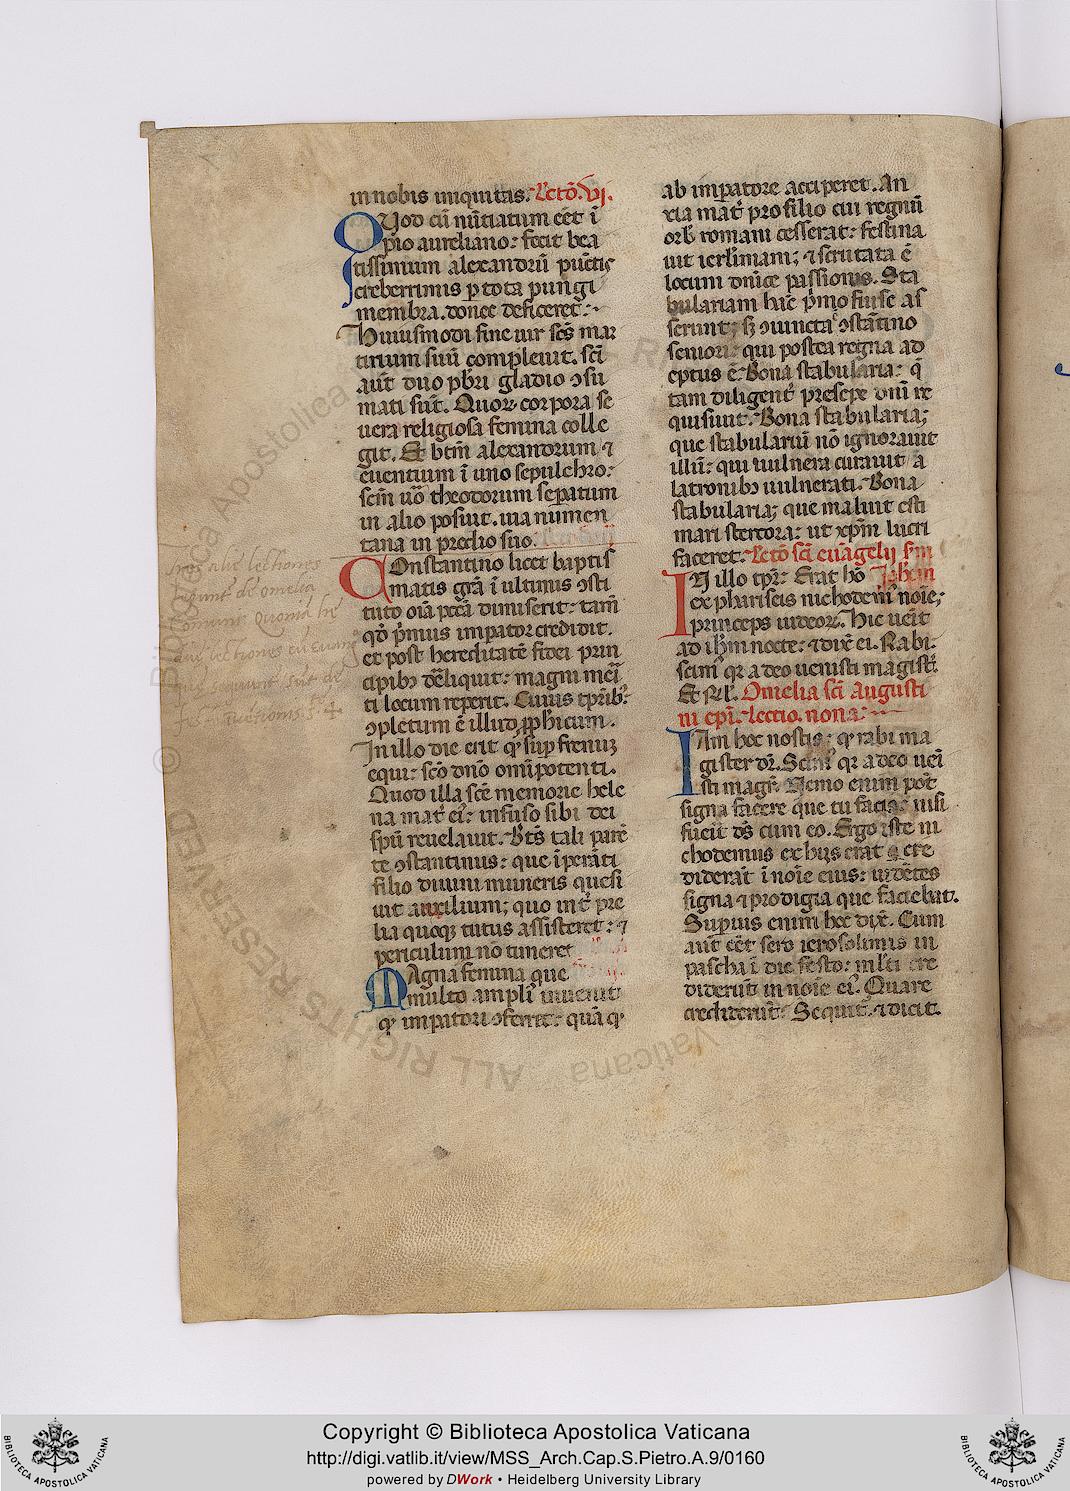 in nobis iniquitas. Lcto. vi.
Quod cū nūtiatum eēt ī
pio aureliano: fecit bea
tissimum alexandrū pūctis
creberrimis p tota pungi
membra. donec deficeret.
Huiusmodi fine uir scs mar
tirium suū compleuit. scī
aut duo pbri gladio ↄsu
mati sūt. Quor corpora se
uera religiosa femina colle
git. Et btm alexandrum ⁊
euentium ī uno sepulchro:
scm uo theodorum sepatum
in alio posuit. uia numen
tana in predio suo.
Constantino licet baptis
matis grā ī ultimis ↄsti
tuto oīa pcca dimiserit: tam
qd pmus impator credidit.
et post hereditatē fidei prin
cipib; deliquit: magni meī
ti locum reperit. Cuius tprib;
ↄpletum ē illud pphicum.
In illo die erit qd sup frenuz
equi: scō dno omīpotenti.
Quod illa sce memorie hele
na mat ei: infuso sibi dei
spū reuelauit. Bts tali parē
te ↄstantinus: que īperāti
filio diuini muneris quesi
uit auxilium; quo int pre
lia quoq; tutus assisteret: ⁊
periculum nō timeret
Magna femina que
multo ampli inuenit
qd impatori ↄferret: quā qd
ab impatore acciperet. An
xia mat pro filio cui regnū
orb romani cesserat: festina
uit ierlimam; ⁊ scrutata ē
locum dnice passionis. Sta
bulariam hāc pmo fuisse as
serunt; s; ↄiuncta ↄstātino
seniori: qui postea regna ad
eptus ē. Bona stabularia: q
tam diligent presepe dnī re
quisiuit. Bona stabularia;
que stabulariū nō ignorauit
illū: qui uulnera curauit a
latronib; uulnerati. Bona
stabularia; que maluit esti
mari stercora: ut xpm lucri
faceret. Lcto scī euāgelij sm
In illo tpr: Erat ho Iohem
ex phariseis nichodem noīe;
princeps iudeor. Hic ueīt
ad ihm nocte: ⁊ dix ei. Rabi.
scim qr a deo uenisti magist.
Et rl. Omelia scī Augusti
ni epi. lectio. nona.
Iam hoc nostis: qd rabi ma
gister dr. Scim qr a deo ueī
sti magr. Nemo enim pōt
signa facere que tu facis: nisi
fuerit ds cum eo. Ergo iste ni
chodemus ex hiis erat q cre
diderāt ī noīe eius: uidētes
signa ⁊ prodigia que faciebat.
Superius enim hoc dix. Cum
aut eēt sero ierosolimis in
pascha ī die festo: mlti cre
diderūt in noīe ei. Quare
crediderūt: Sequit. ⁊ dicit.
Copyright © Biblioteca Apostolica Vaticana
http://digi.vatlib.it/view/MSS_Arch.Cap.S.Pietro.A.9/0160
powered by DWork • Heidelberg University Library
BIBLIOTECA APOSTOLICA VATICANA
BIBLIOTECA APOSTOLICA VATICANA